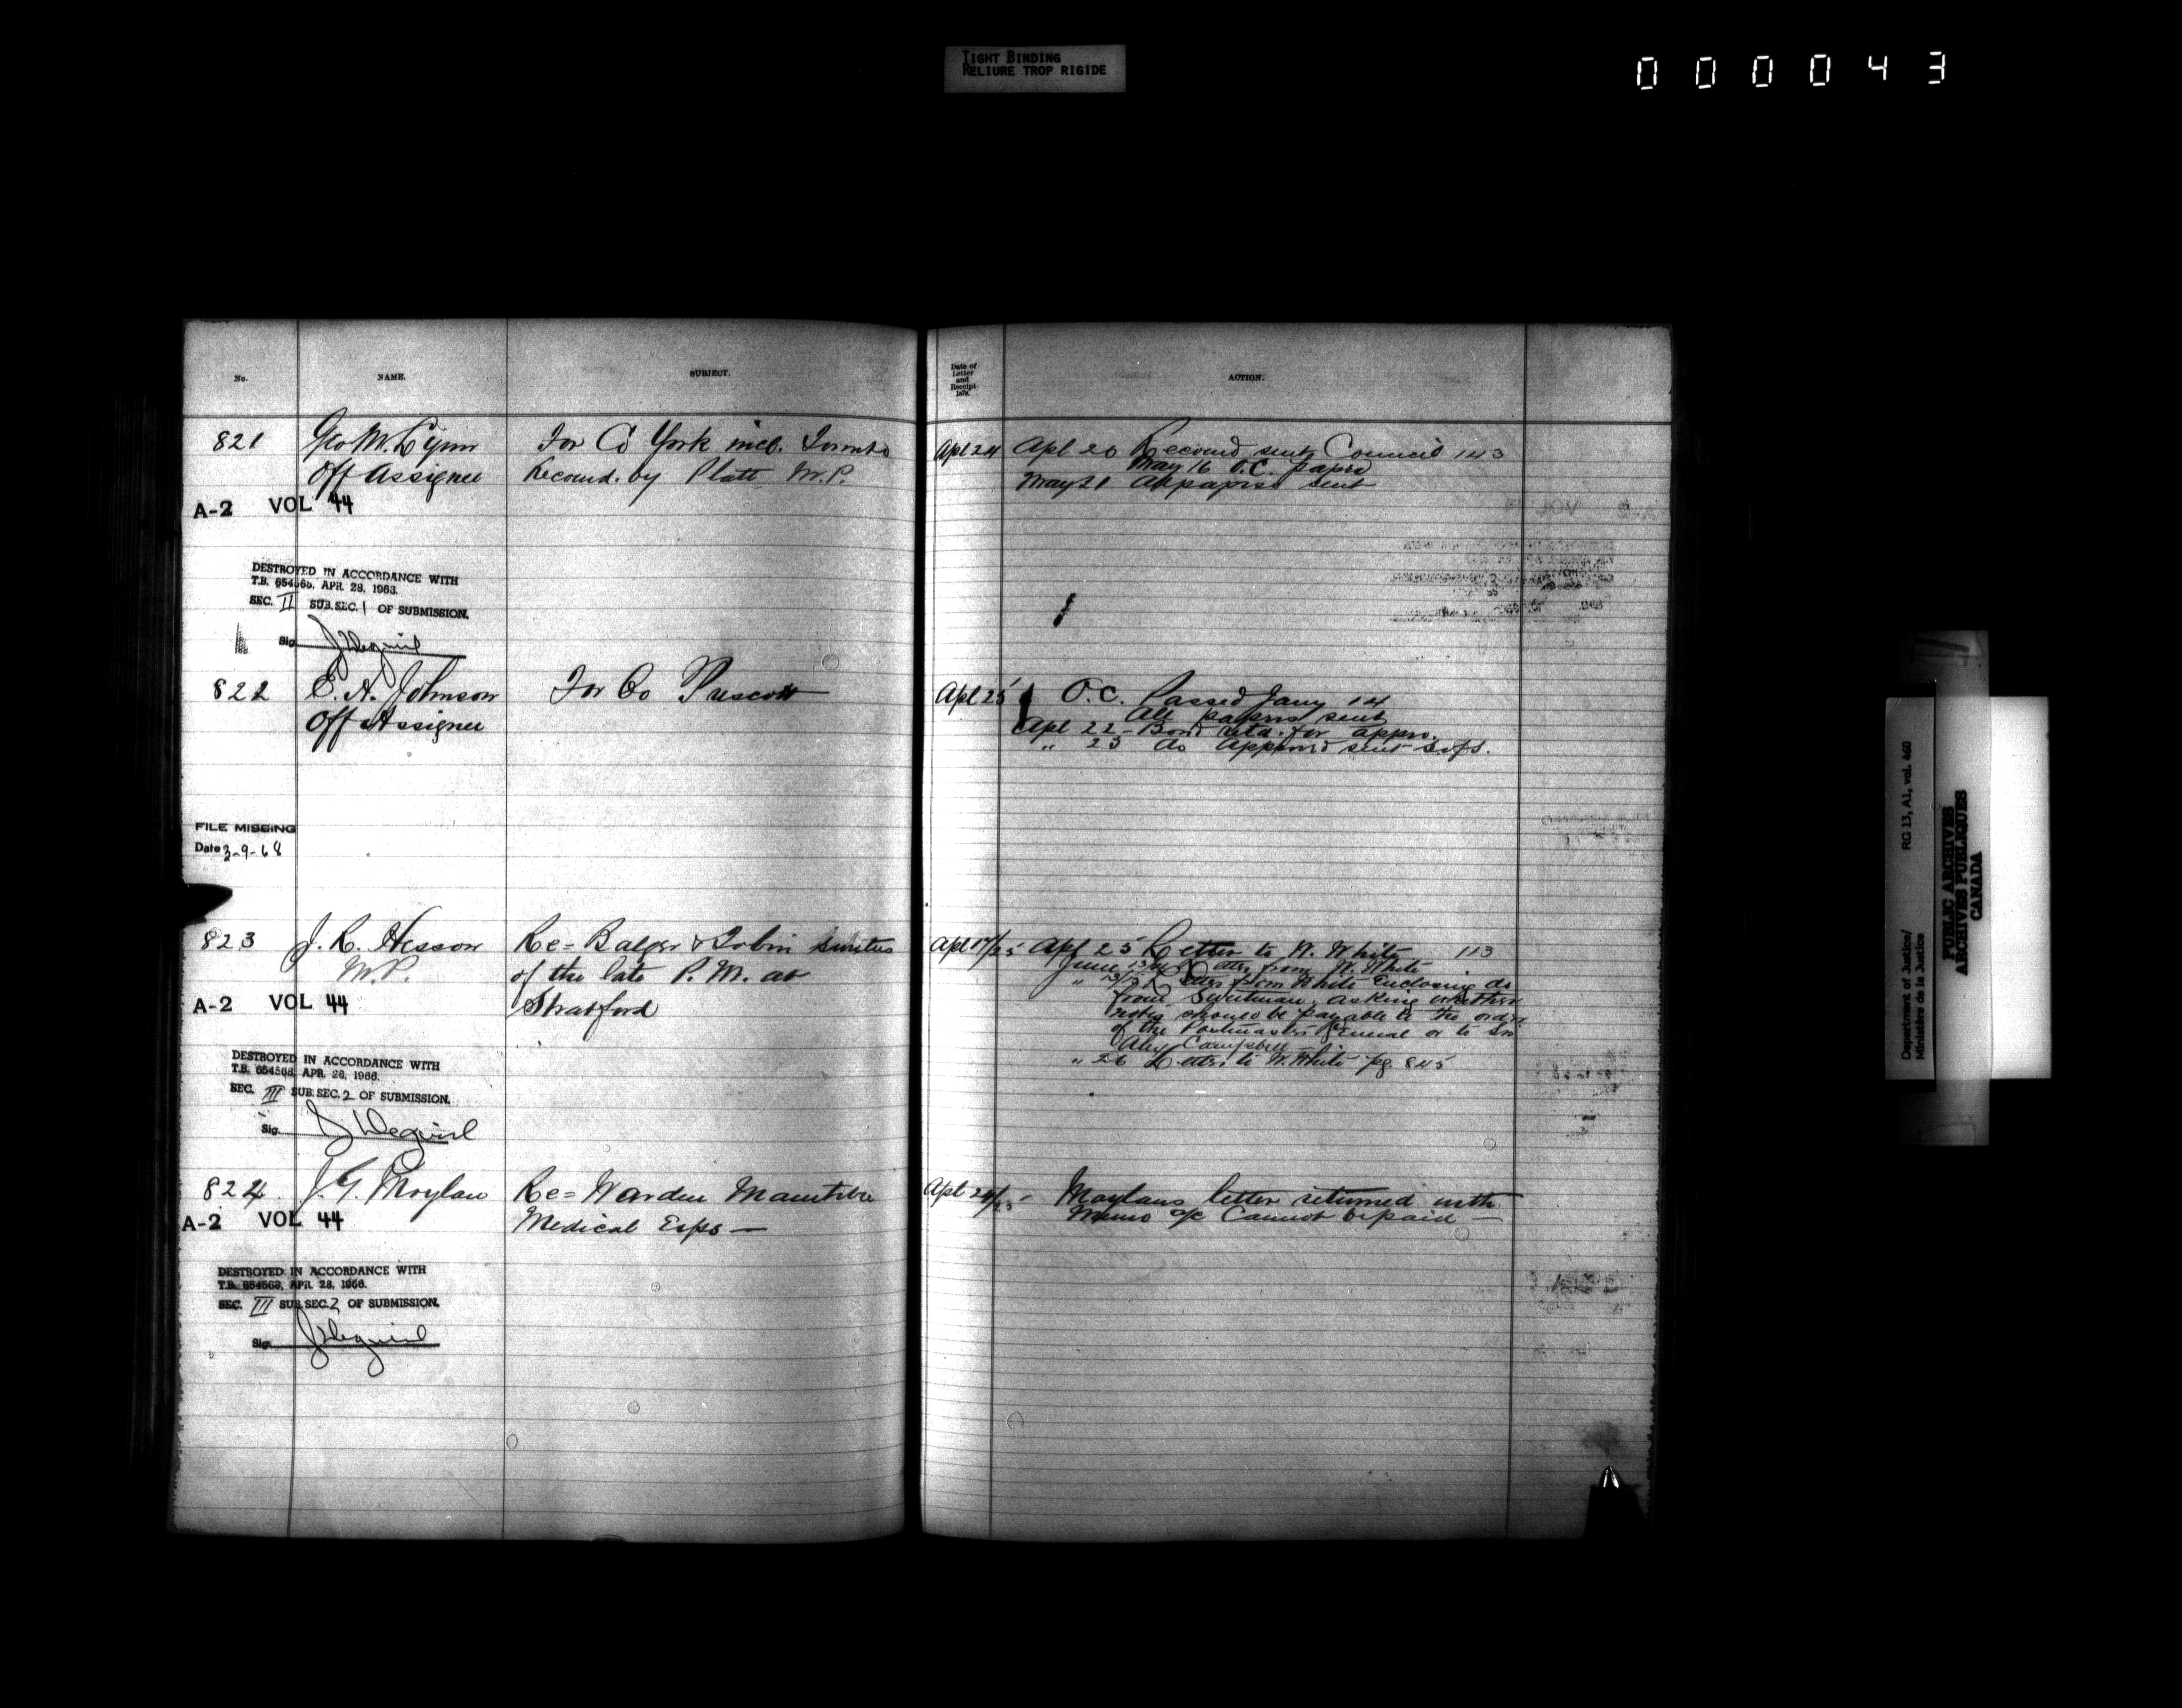 TIGHT BINDING
RELIURE TROP RIGIDE
000043
No. NAME. SUBJECT.
821 Geo M. Lynn For Co York incl. Toronto
Off Assignee Recomd. by Platt M.P.
A-2 VOL 44
DESTROYED IN ACCORDANCE WITH
T.B. 654565, APR. 28, 1966.
SEC. II SUB.SEC. 1 OF SUBMISSION.
Sig.
822 E. A. Johnson For Co Prescott
Off Assignee
FILE MISSING
Date 3-9-68
823 J. R. Hesson Re= & Tobin sureties
M.P. of the late P. M. at
A-2 VOL 44 Stratford
DESTROYED IN ACCORDANCE WITH
T.B. 654568, APR. 28, 1966.
SEC. III SUB.SEC. 2 OF SUBMISSION.
Sig.
824 J. G. Moylan Re= Warden Manitoba
A-2 VOL 44 Medical Exps —
DESTROYED IN ACCORDANCE WITH
T.B. 654568, APR. 28, 1966.
SEC. III SUB.SEC. 2 OF SUBMISSION.
Sig.
Date of
Letter
and
Receipt
1879.
ACTION.
Apl 24 Apl 20 Recomd sent Council 143
May 16 O.C. paprs
May 21 All paprs sent
Apl 25 O.C. Passed Jany 14
All paprs sent
Apl 22 - Bond retd. for appro.
" 25 do Approvd sent S. of S.
Apl 17/25 Apl 25 Letter to W. White 113
June Letter from W. White
" Letter from White Enclosing do
from asking whether
notes should be payable to the order
of the Postmaster General or to Sir
Alex Campbell
" 26 Letter to W. White pg. 845
Apl 24/25 - Moylans letter returned with
Memo a/c Cannot be paid —
Department of Justice/
Ministère de la Justice
RG 13, A1, vol. 460
PUBLIC ARCHIVES
ARCHIVES PUBLIQUES
CANADA